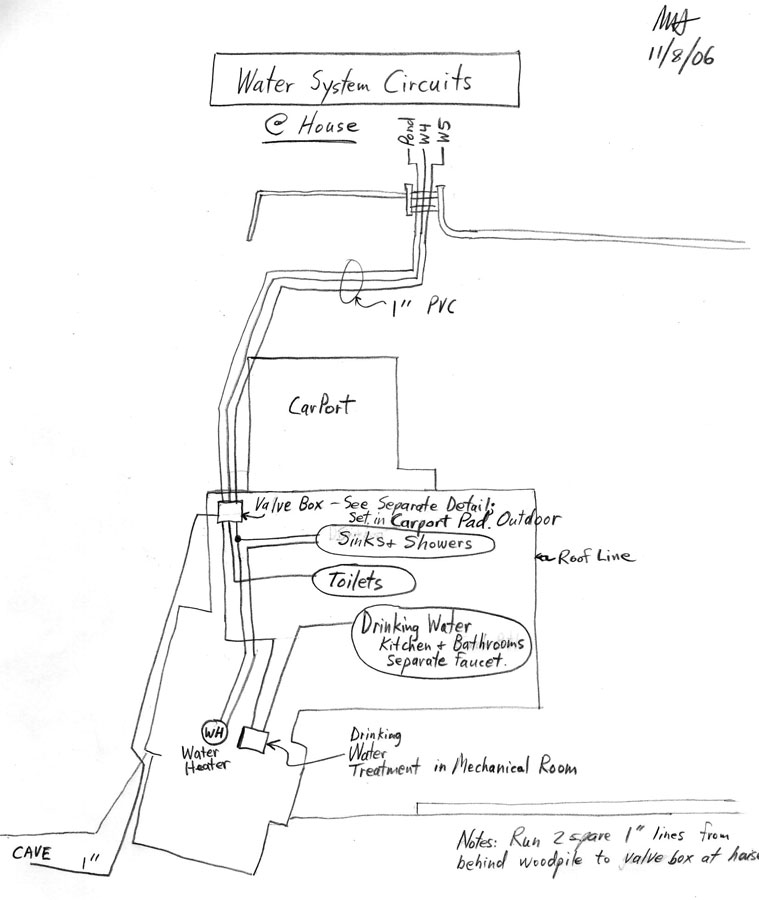 11/8/06
Water System Circuits
@ House
Pond
W4
W5
1" PVC
CarPort
Valve Box - See Separate Detail;
Set in Carport Pad. Outdoor
Sinks + Showers
Roof Line
Toilets
Drinking Water
Kitchen + Bathrooms
Separate faucet.
WH
Water
Heater
Drinking
Water
Treatment in Mechanical Room
CAVE 1"
Notes: Run 2 spare 1" lines from
behind woodpile to valve box at house